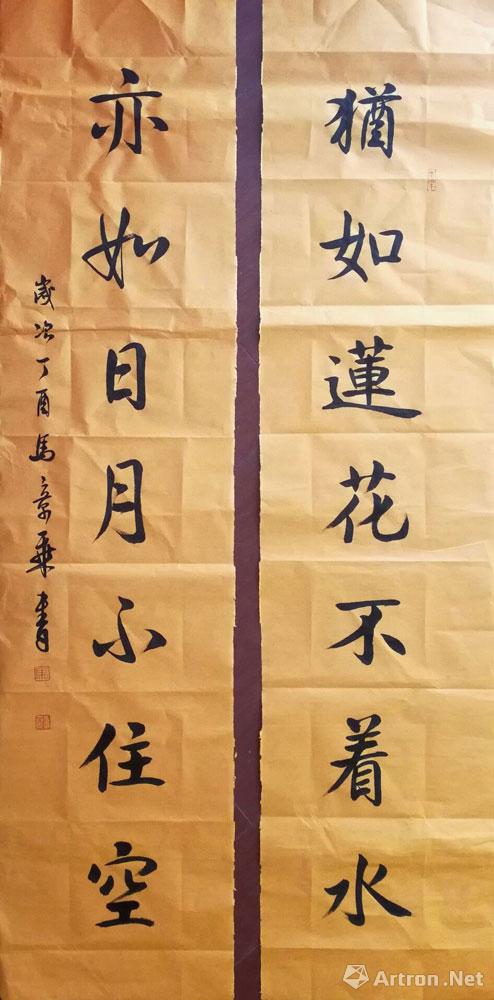 猶如蓮花不着水
亦如日月不住空
歲次丁酉馬章乘書
Artron.Net